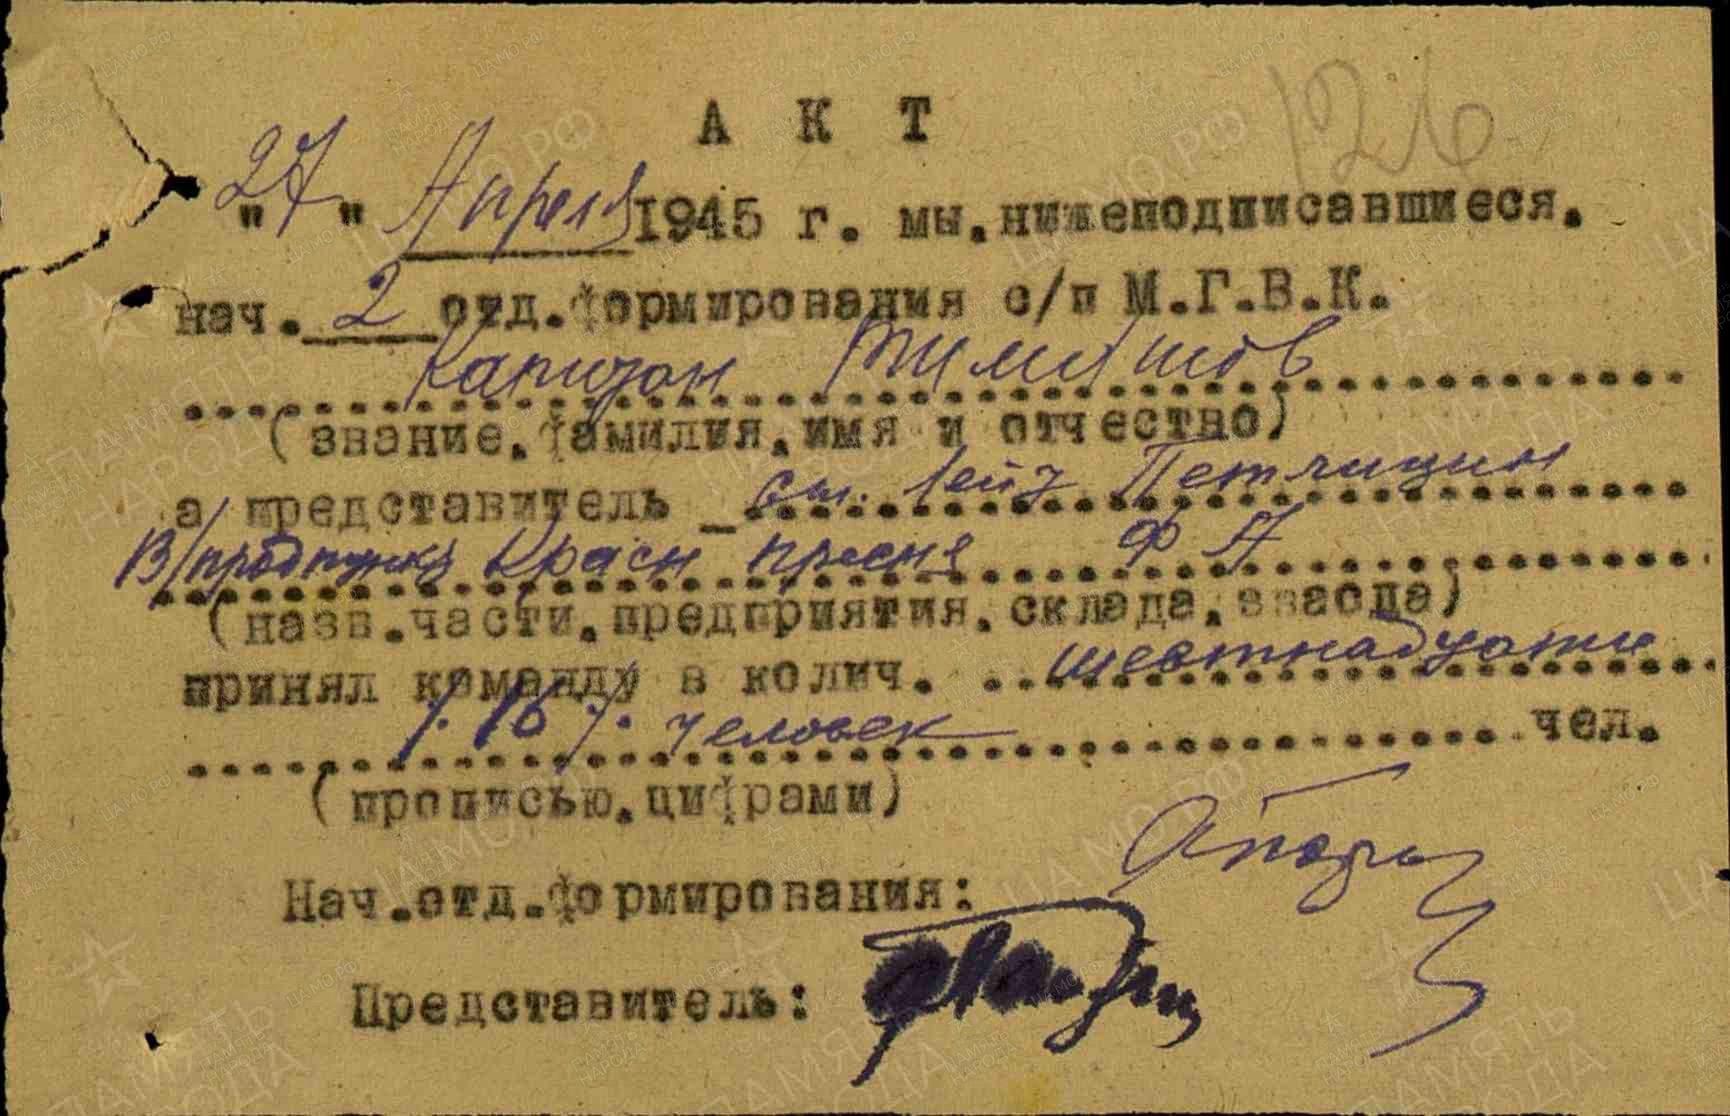 126
А К Т
"27" Апреля 1945 г. мы.нижеподписавшиеся.
нач. 2 отд.формирования с/п М.Г.В.К.
Капитан Тимашов
(звание.фамилия.имя и отчество)
а представитель ст. лейт Петлицин
В/продпункт Красн Пресня Ф А
(назв.части.предприятия.склада.завсода)
принял команду в колич. шестнадцати
/. 16 /. человек чел.
(прописью.цифрами)
Нач.отд.формирования:
Представитель:
ПАМЯТЬ НАРОДА
ЦАМО.РФ